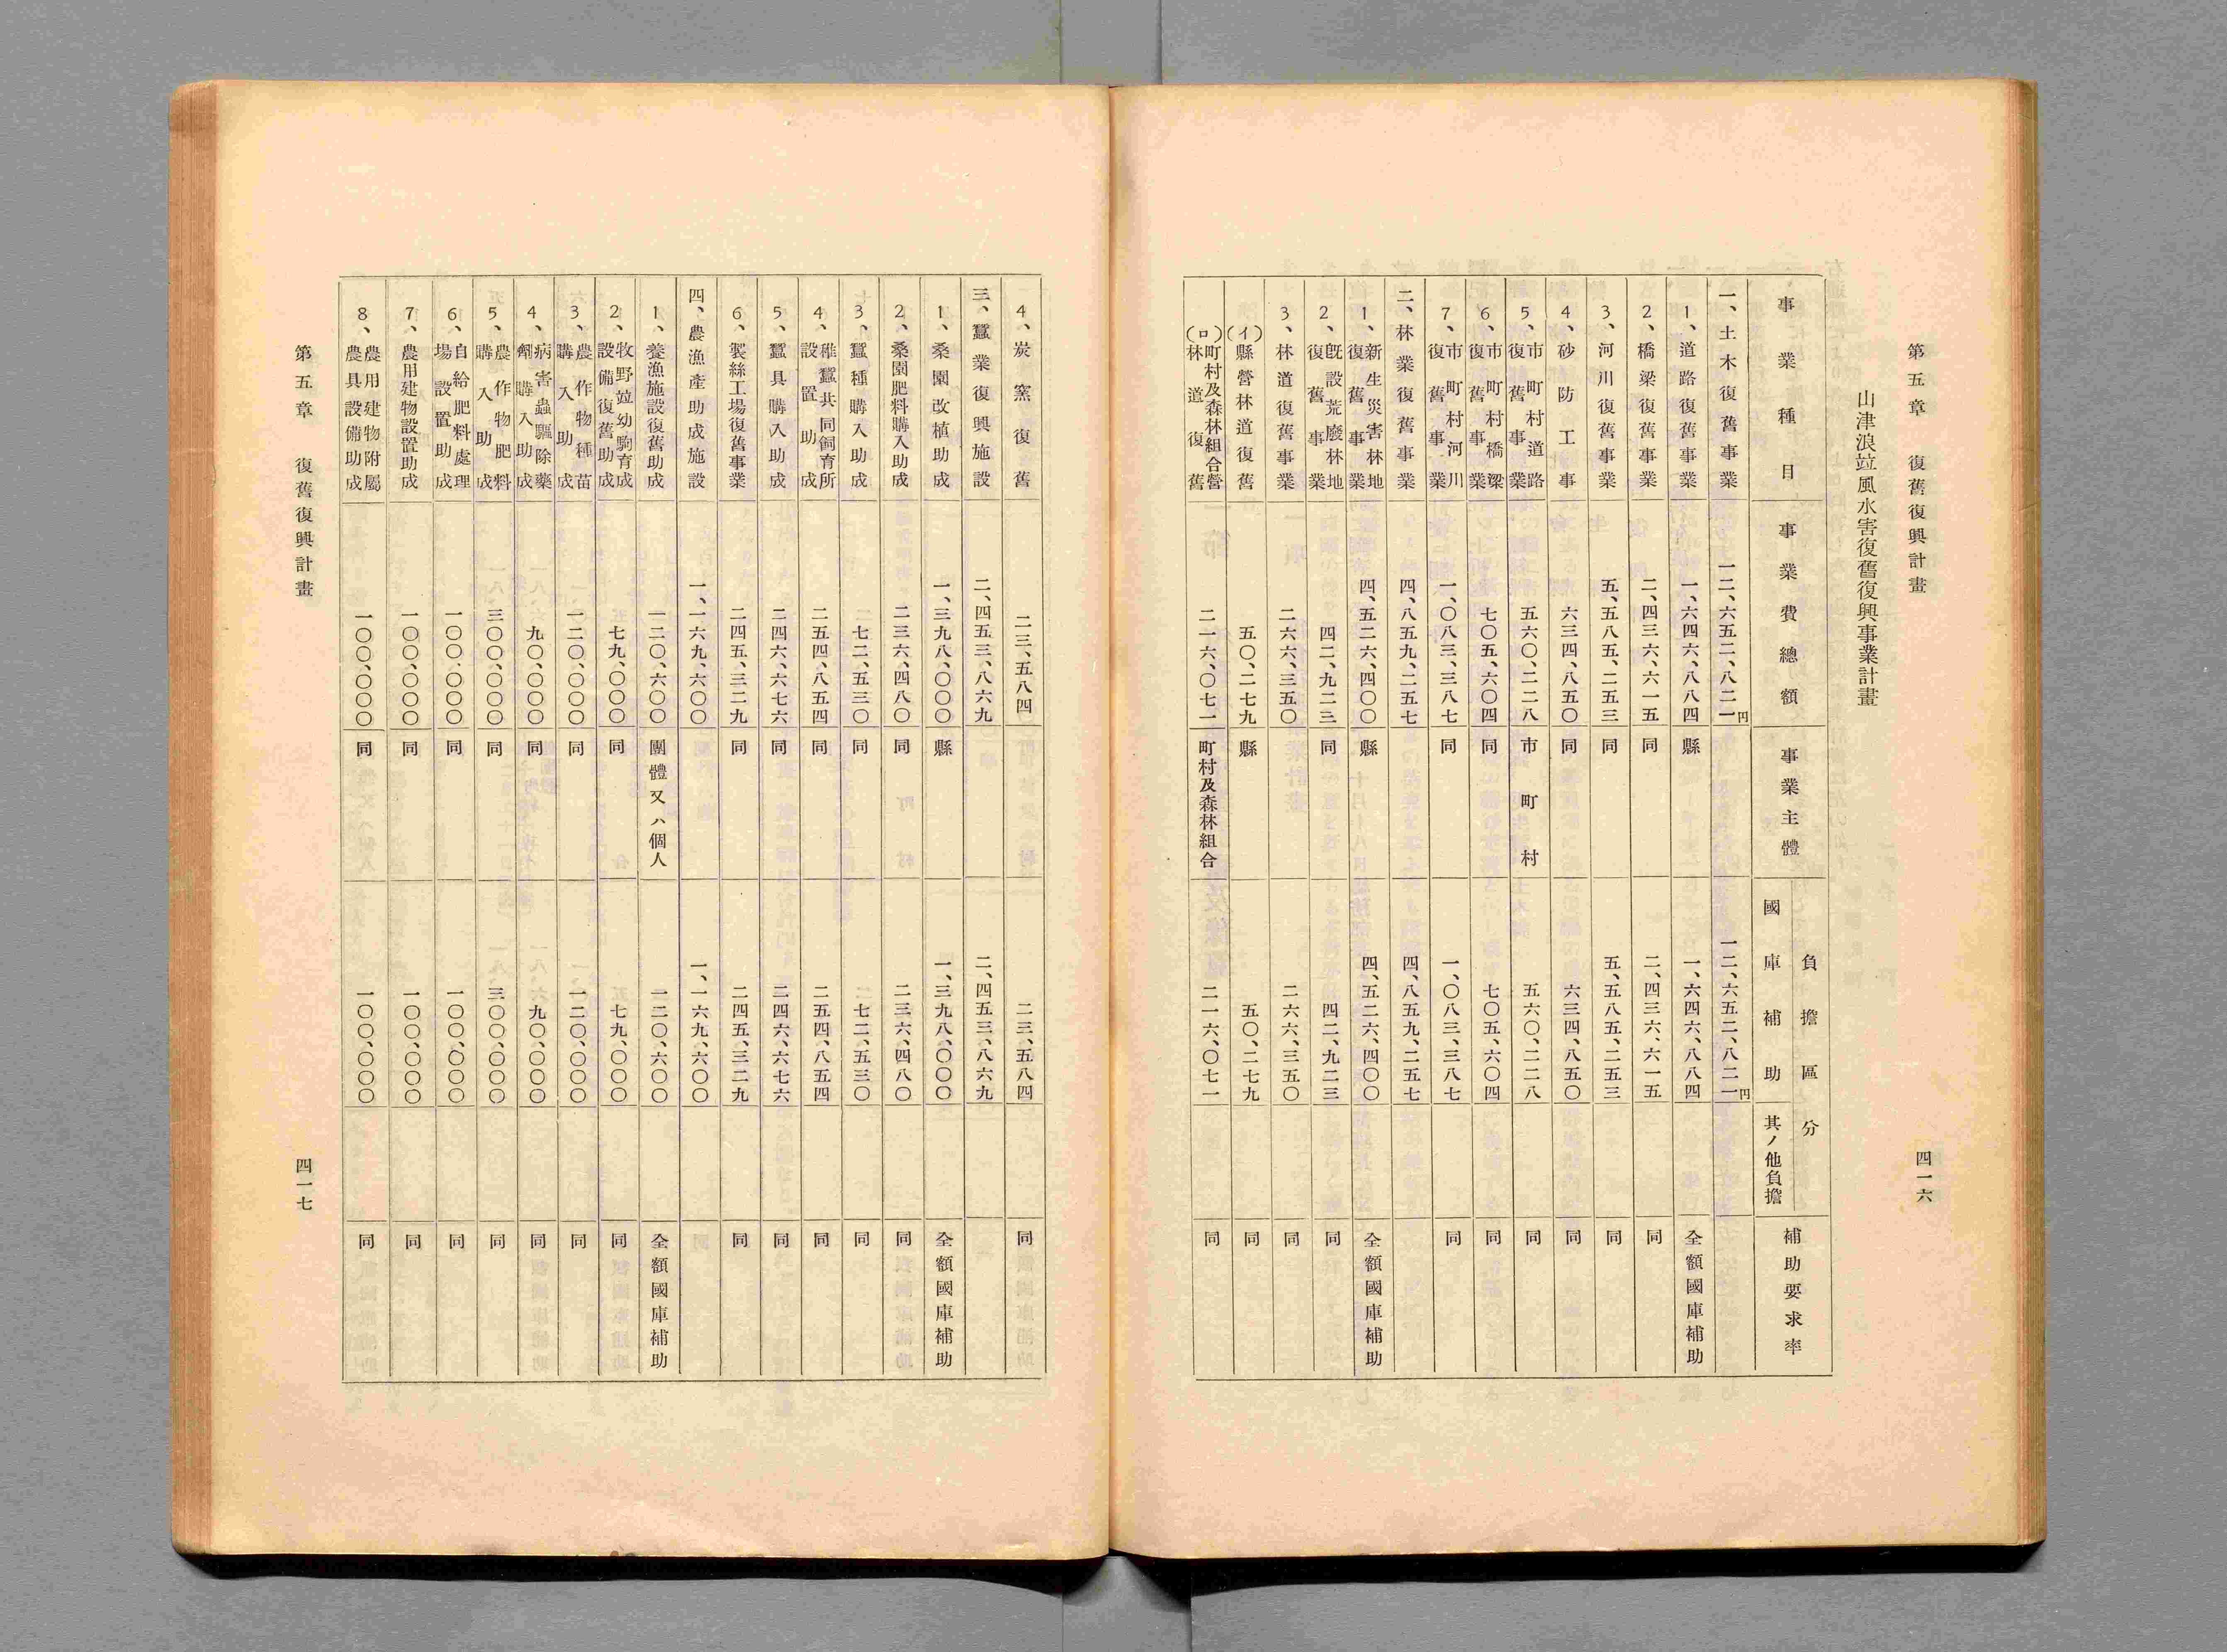 第五章 復舊復興計畫 四一六
山津浪竝風水害復舊復興事業計畫
事業種目 事業費總額 事業主體 負擔區分 國庫補助 其ノ他負擔 補助要求率
一、土木復舊事業 一二、六五二、八二一円 一二、六五二、八二一円
1、道路復舊事業 一、六四六、八八四 縣 一、六四六、八八四 全額國庫補助
2、橋梁復舊事業 二、四三六、六一五 同 二、四三六、六一五 同
3、河川復舊事業 五、五八五、二五三 同 五、五八五、二五三 同
4、砂防工事 六三四、八五〇 同 六三四、八五〇 同
5、市町村道路復舊事業 五六〇、二二八 市町村 五六〇、二二八 同
6、市町村橋梁復舊事業 七〇五、六〇四 同 七〇五、六〇四 同
7、市町村河川復舊事業 一、〇八三、三八七 同 一、〇八三、三八七 同
二、林業復舊事業 四、八五九、二五七 四、八五九、二五七
1、新生災害林地復舊事業 四、五二六、四〇〇 縣 四、五二六、四〇〇 全額國庫補助
2、既設荒廢林地復舊事業 四二、九二三 同 四二、九二三 同
3、林道復舊事業 二六六、三五〇 二六六、三五〇 同
(イ)縣營林道復舊 五〇、二七九 縣 五〇、二七九 同
(ロ)町村及森林組合營林道復舊 二一六、〇七一 町村及森林組合 二一六、〇七一 同
4、炭窯復舊 二三、五八四 二三、五八四 同
三、蠶業復興施設 二、四五三、八六九 二、四五三、八六九
1、桑園改植助成 一、三九八、〇〇〇 縣 一、三九八、〇〇〇 全額國庫補助
2、桑園肥料購入助成 二三六、四八〇 同 二三六、四八〇 同
3、蠶種購入助成 七二、五三〇 同 七二、五三〇 同
4、稚蠶共同飼育所設置助成 二五四、八五四 同 二五四、八五四 同
5、蠶具購入助成 二四六、六七六 同 二四六、六七六 同
6、製絲工場復舊事業 二四五、三二九 同 二四五、三二九 同
四、農漁產助成施設 一、一六九、六〇〇 一、一六九、六〇〇
1、養漁施設復舊助成 一二〇、六〇〇 團體又ハ個人 一二〇、六〇〇 全額國庫補助
2、牧野竝幼駒育成設備復舊助成 七九、〇〇〇 同 七九、〇〇〇 同
3、農作物種苗購入助成 一二〇、〇〇〇 同 一二〇、〇〇〇 同
4、病害蟲驅除藥劑購入助成 九〇、〇〇〇 同 九〇、〇〇〇 同
5、農作物肥料購入助成 三〇〇、〇〇〇 同 三〇〇、〇〇〇 同
6、自給肥料處理場設置助成 一〇〇、〇〇〇 同 一〇〇、〇〇〇 同
7、農用建物設置助成 一〇〇、〇〇〇 同 一〇〇、〇〇〇 同
8、農用建物附屬農具設備助成 一〇〇、〇〇〇 同 一〇〇、〇〇〇 同
第五章 復舊復興計畫 四一七